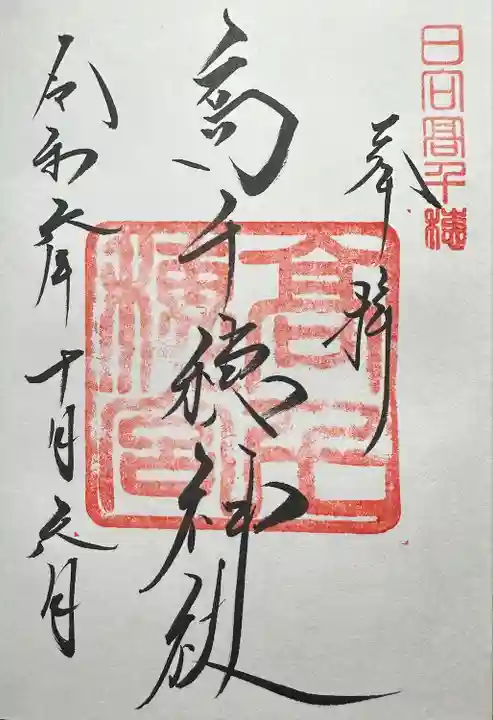 日向高千穂
奉拝
高千穂神社
令和六年十月六日